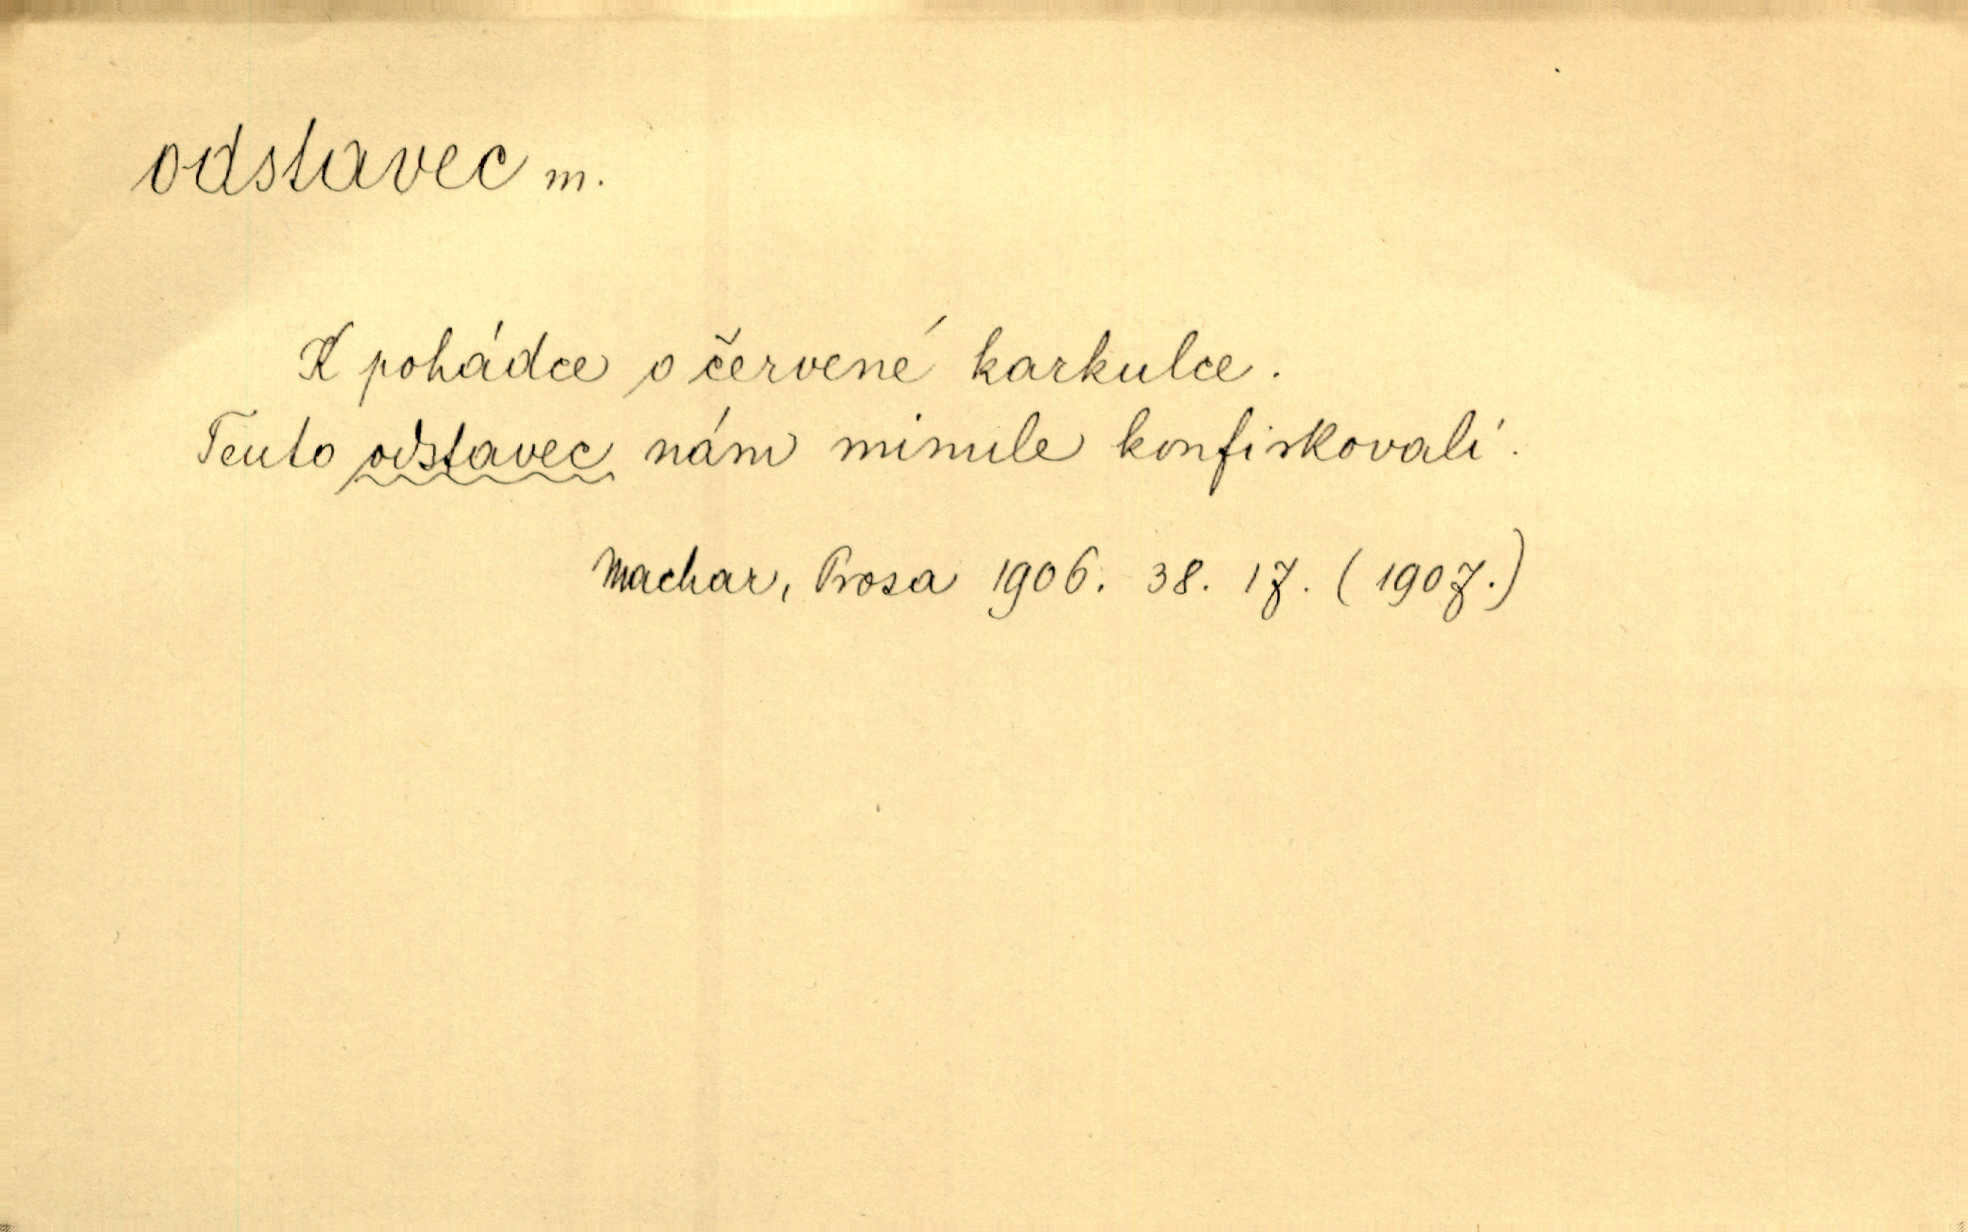 odstavec m.
K pohádce o červené karkulce.
Tento odstavec nám minule konfiskovali.
Machar, Prosa 1906. 38. 17. (1907.)